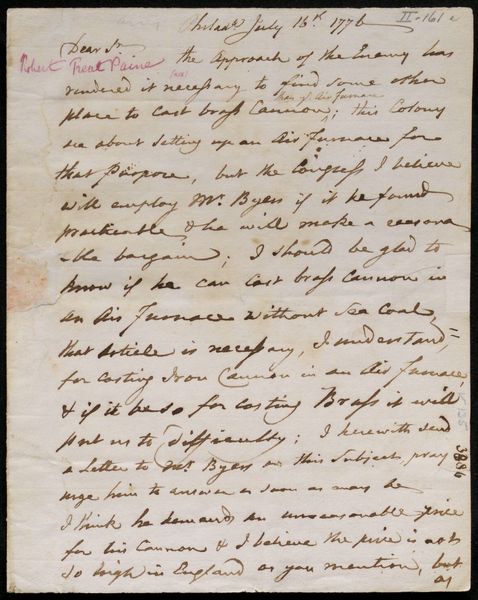 Philada July 13th. 1776
II-161 a
Dear Sr.
Robert Treat Paine
the Approach of the Enemy has
rendered it necessary to find some other
place to cast brass Cannon; this Colony
are about setting up an Air Furnace for
that Purpose, but the Congress I believe
will employ Mr. Byers if it be found
practicable & he will make a reasona
ble bargain; I should be glad to
know if he can cast brass Cannon in
an Air Furnace without Sea Coal,
that article is necessary, I understand,
for casting Iron Cannon in an Air Furnace,
& if it be so for casting Brass it will
put us to difficulty; I herewith send
a Letter to Mr. Byers on this Subject, pray
urge him to answer as soon as may be
I think he demands an unreasonable price
for his Cannon & I believe the price is not
so high in England as you mention, but
as
3886